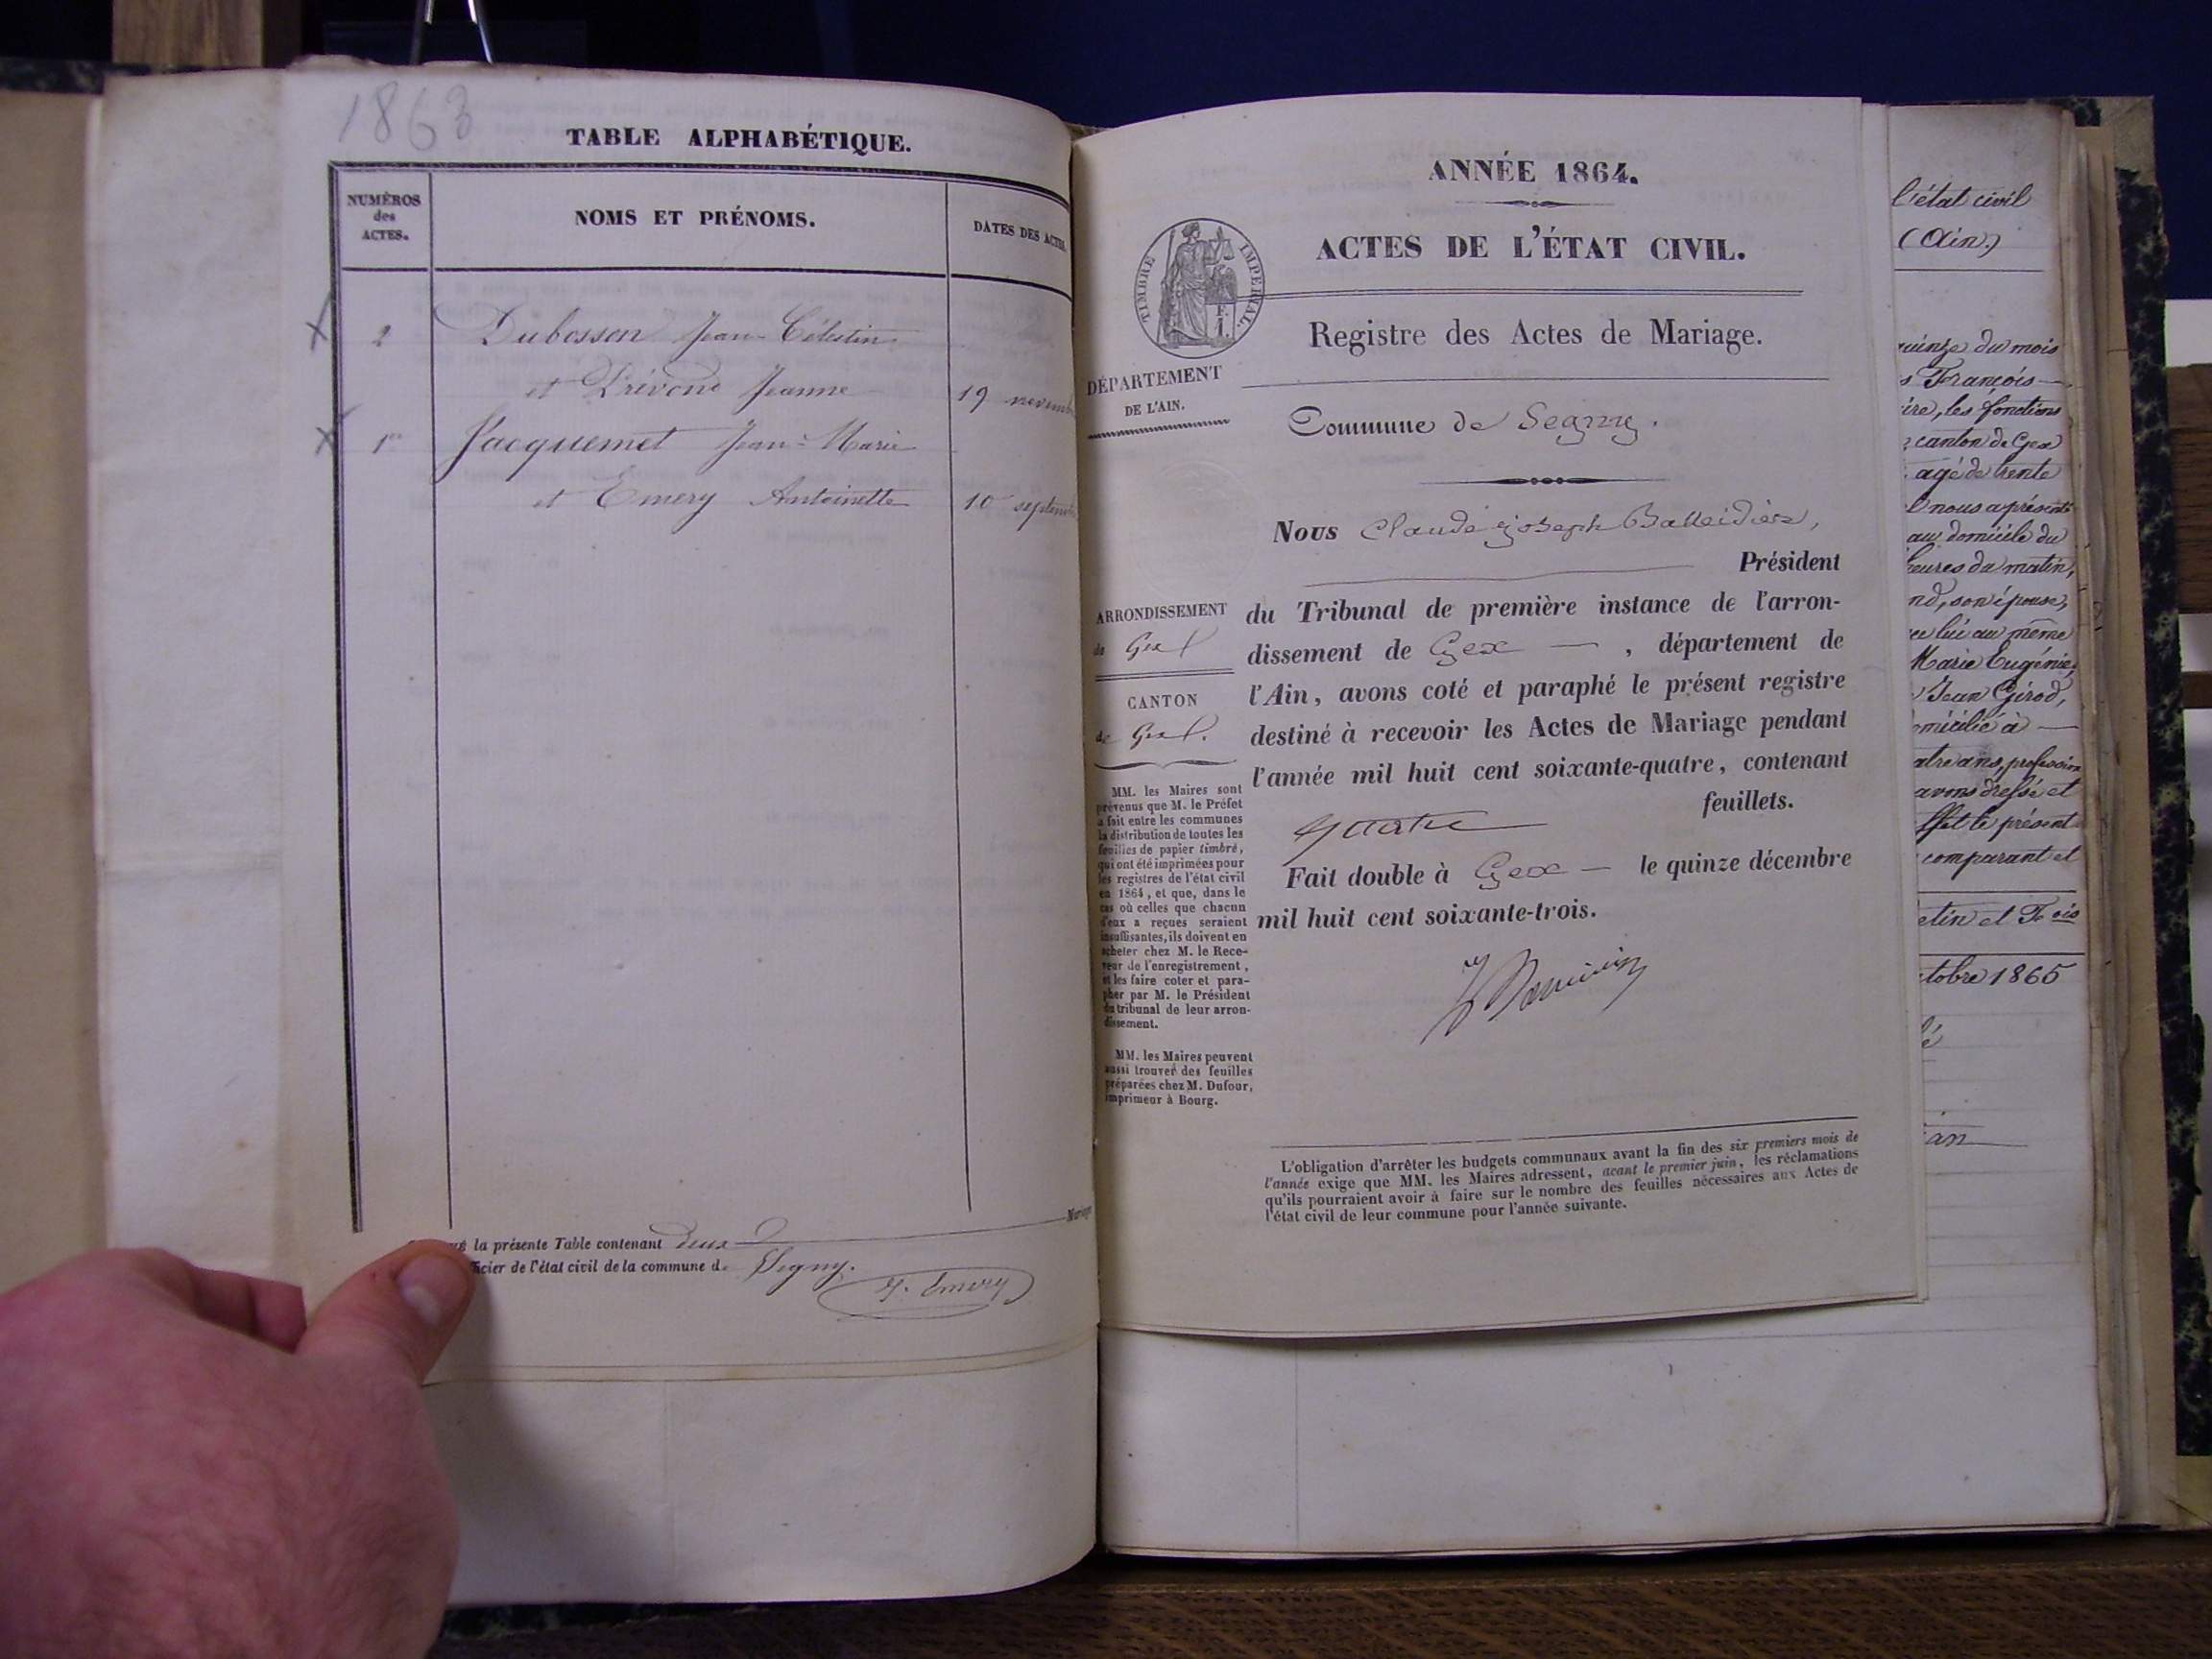 1863
TABLE ALPHABÉTIQUE.
NUMÉROS
des
ACTES.
NOMS ET PRÉNOMS.
DATES DES ACTES
2 Dubosson Jean-Célestin
et Prévond Jeanne 19 novemb
1er Jacquemet Jean-Marie
et Emery Antoinette 10 septemb
la présente Table contenant deux Mariage
ficier de l'état civil de la commune de Segny.
F. Emery
ANNÉE 1864.
ACTES DE L'ÉTAT CIVIL.
TIMBRE IMPÉRIAL.
Registre des Actes de Mariage.
DÉPARTEMENT
DE L'AIN.
Commune de Segny.
Nous Claude joseph Balleidier,
Président
du Tribunal de première instance de l'arron-
dissement de Gex — , département de
l'Ain, avons coté et paraphé le présent registre
destiné à recevoir les Actes de Mariage pendant
l'année mil huit cent soixante-quatre, contenant
quatre feuillets.
Fait double à Gex — le quinze décembre
mil huit cent soixante-trois.
ARRONDISSEMENT
de Gex
CANTON
de Gex.
MM. les Maires sont
prévenus que M. le Préfet
a fait entre les communes
la distribution de toutes les
feuilles de papier timbré,
qui ont été imprimées pour
les registres de l'état civil
en 1864, et que, dans le
cas où celles que chacun
d'eux a reçues seraient
insuffisantes, ils doivent en
acheter chez M. le Rece-
veur de l'enregistrement,
et les faire coter et para-
pher par M. le Président
du tribunal de leur arron-
dissement.
MM. les Maires peuvent
aussi trouver des feuilles
préparées chez M. Dufour,
imprimeur à Bourg.
L'obligation d'arrêter les budgets communaux avant la fin des six premiers mois de
l'année exige que MM. les Maires adressent, avant le premier juin, les réclamations
qu'ils pourraient avoir à faire sur le nombre des feuilles nécessaires aux Actes de
l'état civil de leur commune pour l'année suivante.
l'état civil
(Ain)
quinze du mois
s François
ire, les fonctions
canton de Gex
agé de trente
nous a présenté
au domicile du
heures du matin,
nd, son épouse,
lui au même
Marie Eugénie,
Jean Girod,
omicilié à
atre ans, profession
avons dressé et
ffet le présent
comparant et
etin et Fois
ctobre 1865
an